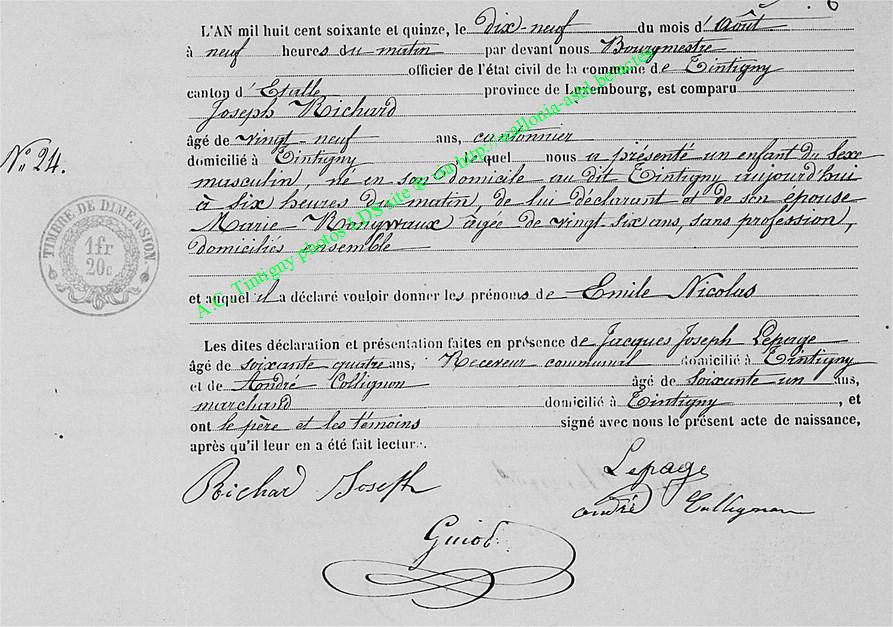 L'AN mil huit cent soixante et quinze, le dix-neuf du mois d'Août
à neuf heures du matin par devant nous Bourgmestre
officier de l'état civil de la commune de Tintigny
canton d'Etalle province de Luxembourg, est comparu
Joseph Richard
âgé de vingt-neuf ans, cantonnier
N° 24.
domicilié à Tintigny lequel nous a présenté un enfant du sexe
masculin, né en son domicile au dit Tintigny aujourd'hui
à six heures du matin, de lui déclarant et de son épouse
Marie âgée de vingt six ans, sans profession,
domiciliés ensemble
TIMBRE DE DIMENSION.
1fr
20c
A.C. Tintigny photos J.DS site © via http://wallonia-asbl.be/actes
et auquel il a déclaré vouloir donner les prénoms de Emile Nicolas
Les dites déclaration et présentation faites en présence de Jacques Joseph Lepage
âgé de soixante quatre ans, Receveur communal domicilié à Tintigny
et de André Collignon âgé de soixante un ans,
marchand domicilié à Tintigny, et
ont le père et les témoins signé avec nous le présent acte de naissance,
après qu'il leur en a été fait lecture.
Richard Joseph
Lepage
andré Collignon
Guiot